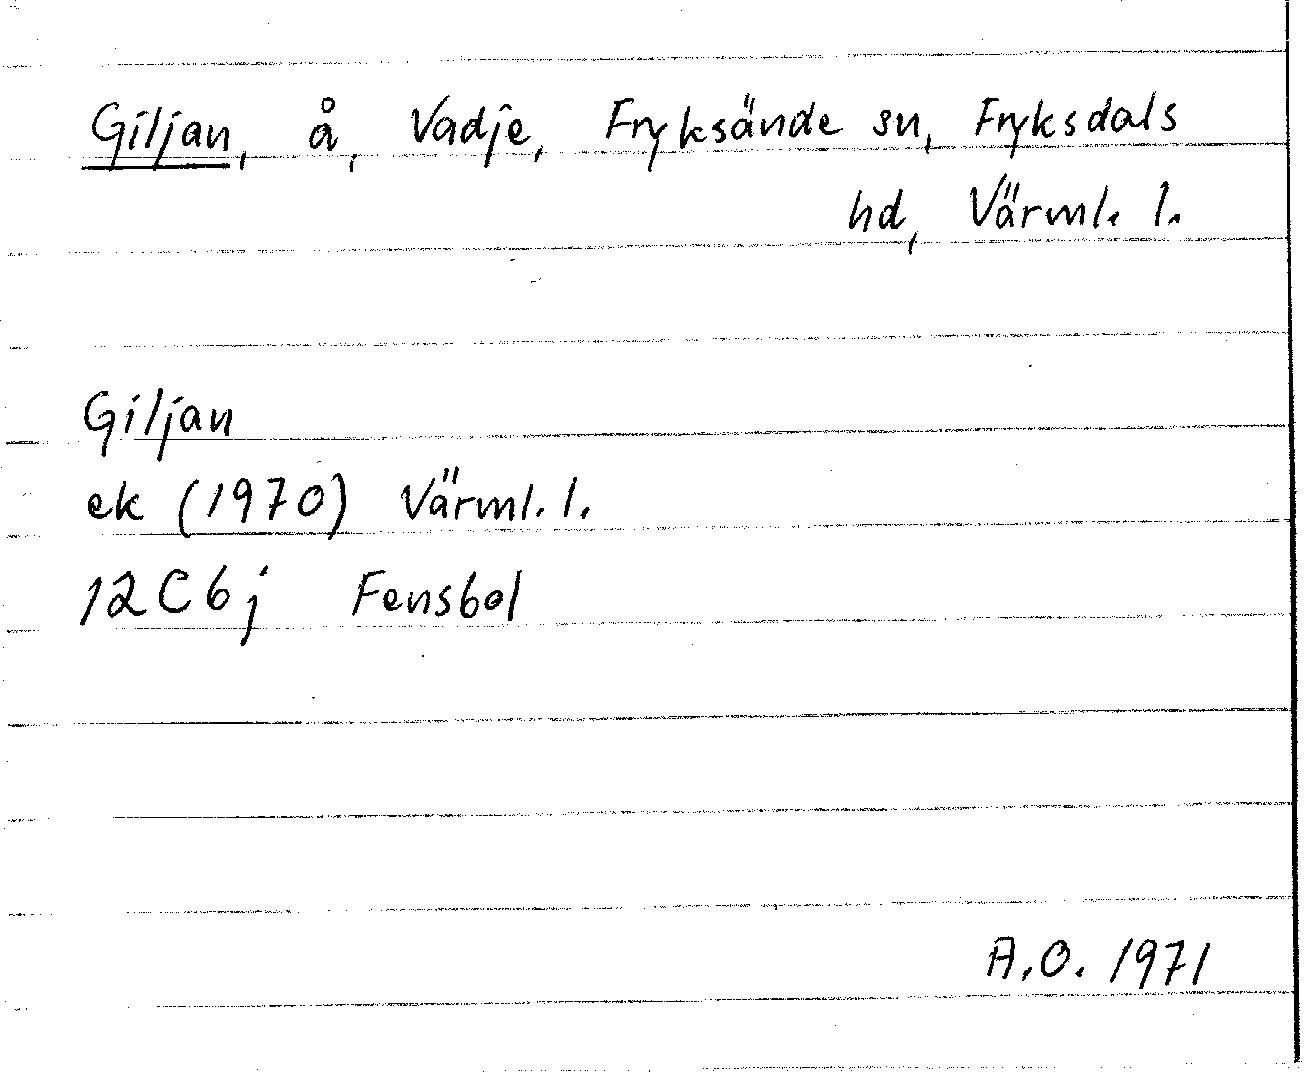 Giljan, å, Vadje, Fryksände sn, Fryksdals
hd, Värml. l.
Giljan
ek (1970) Värml. l.
12C6j Fensbol
A.O. 1971